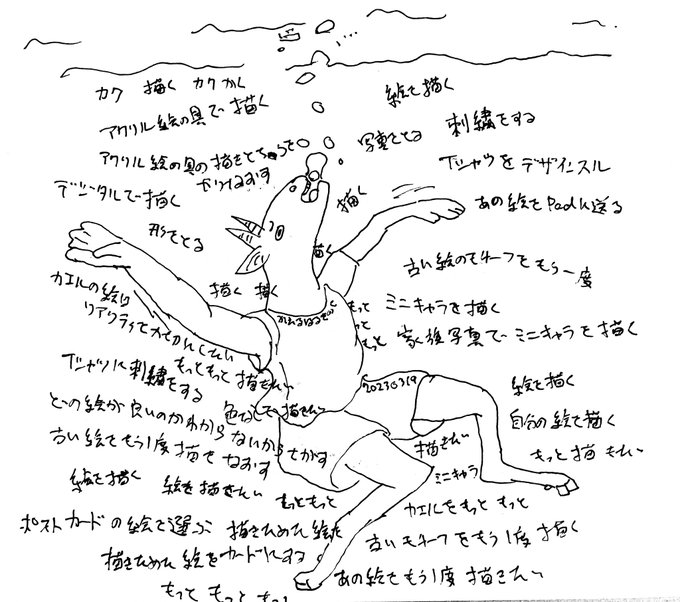 カク 描く カク かく
絵を描く
アクリル絵の具で描く
刺繍をする
写真をとる
アクリル絵の具の描きとちゅうを
かさねるおす
Tシャツをデザインスル
デジタルで描く
描く
あの絵をPadに送る
形をとる
描く
古い絵のモチーフをもう一度
カエルの絵は
リアクティで
描く 描く
もっと ミニキャラを描く
もっと
もっと 家族写真で ミニキャラを描く
Tシャツに刺繍をする
もっともっと 描きたい
20230319
絵を描く
どの絵が良いのかわからないからさがす
色なしで 描きたい
自分の絵を描く
古い絵をもう1度描きなおす
描きたい
もっと描きたい
絵を描く 絵を描きたい もっともっと
ミニキャラ
カエルをもっともっと
ポストカードの絵を選ぶ 描きためた絵を
古いモチーフをもう1度 描く
描きためた絵をカードにする
あの絵をもう1度描きたい
もっともっともっ